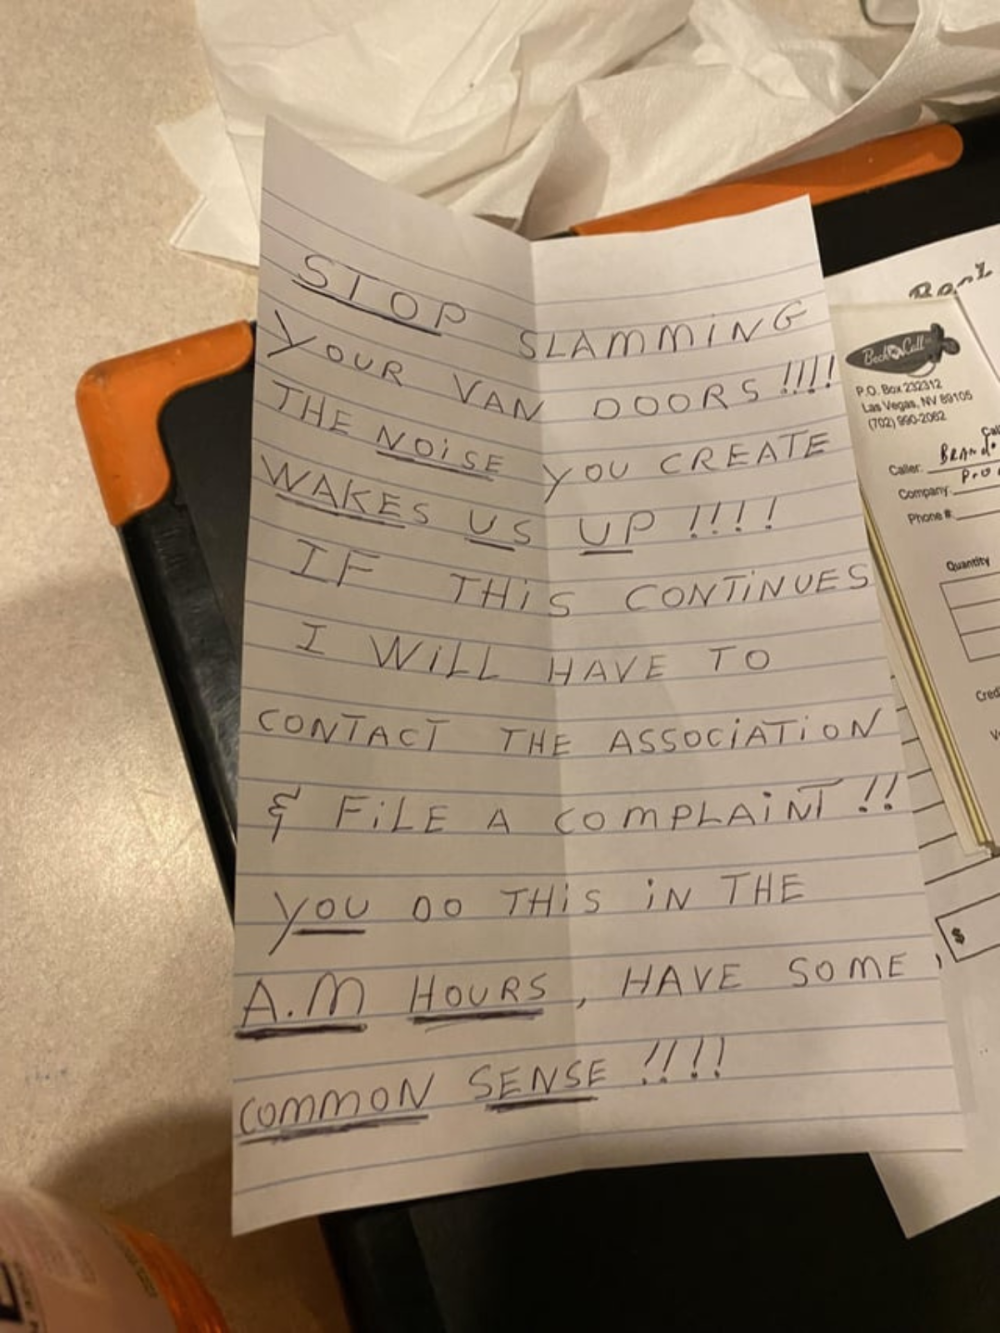 STOP SLAMMING
YOUR VAN DOORS !!!!
THE NOiSE YOU CREATE
WAKES US UP !!!!
IF THiS CONTiNUES
I WiLL HAVE TO
CONTACT THE ASSOCiATiON
& FiLE A COMPLAiNT !!
YOU DO THiS iN THE
A.M HOURS, HAVE SOME
COMMON SENSE !!!!
Beck Call
P.O. Box 232312
Las Vegas, NV 89105
(702) 990-2062
Caller:
Company:
Phone #:
Quantity
$